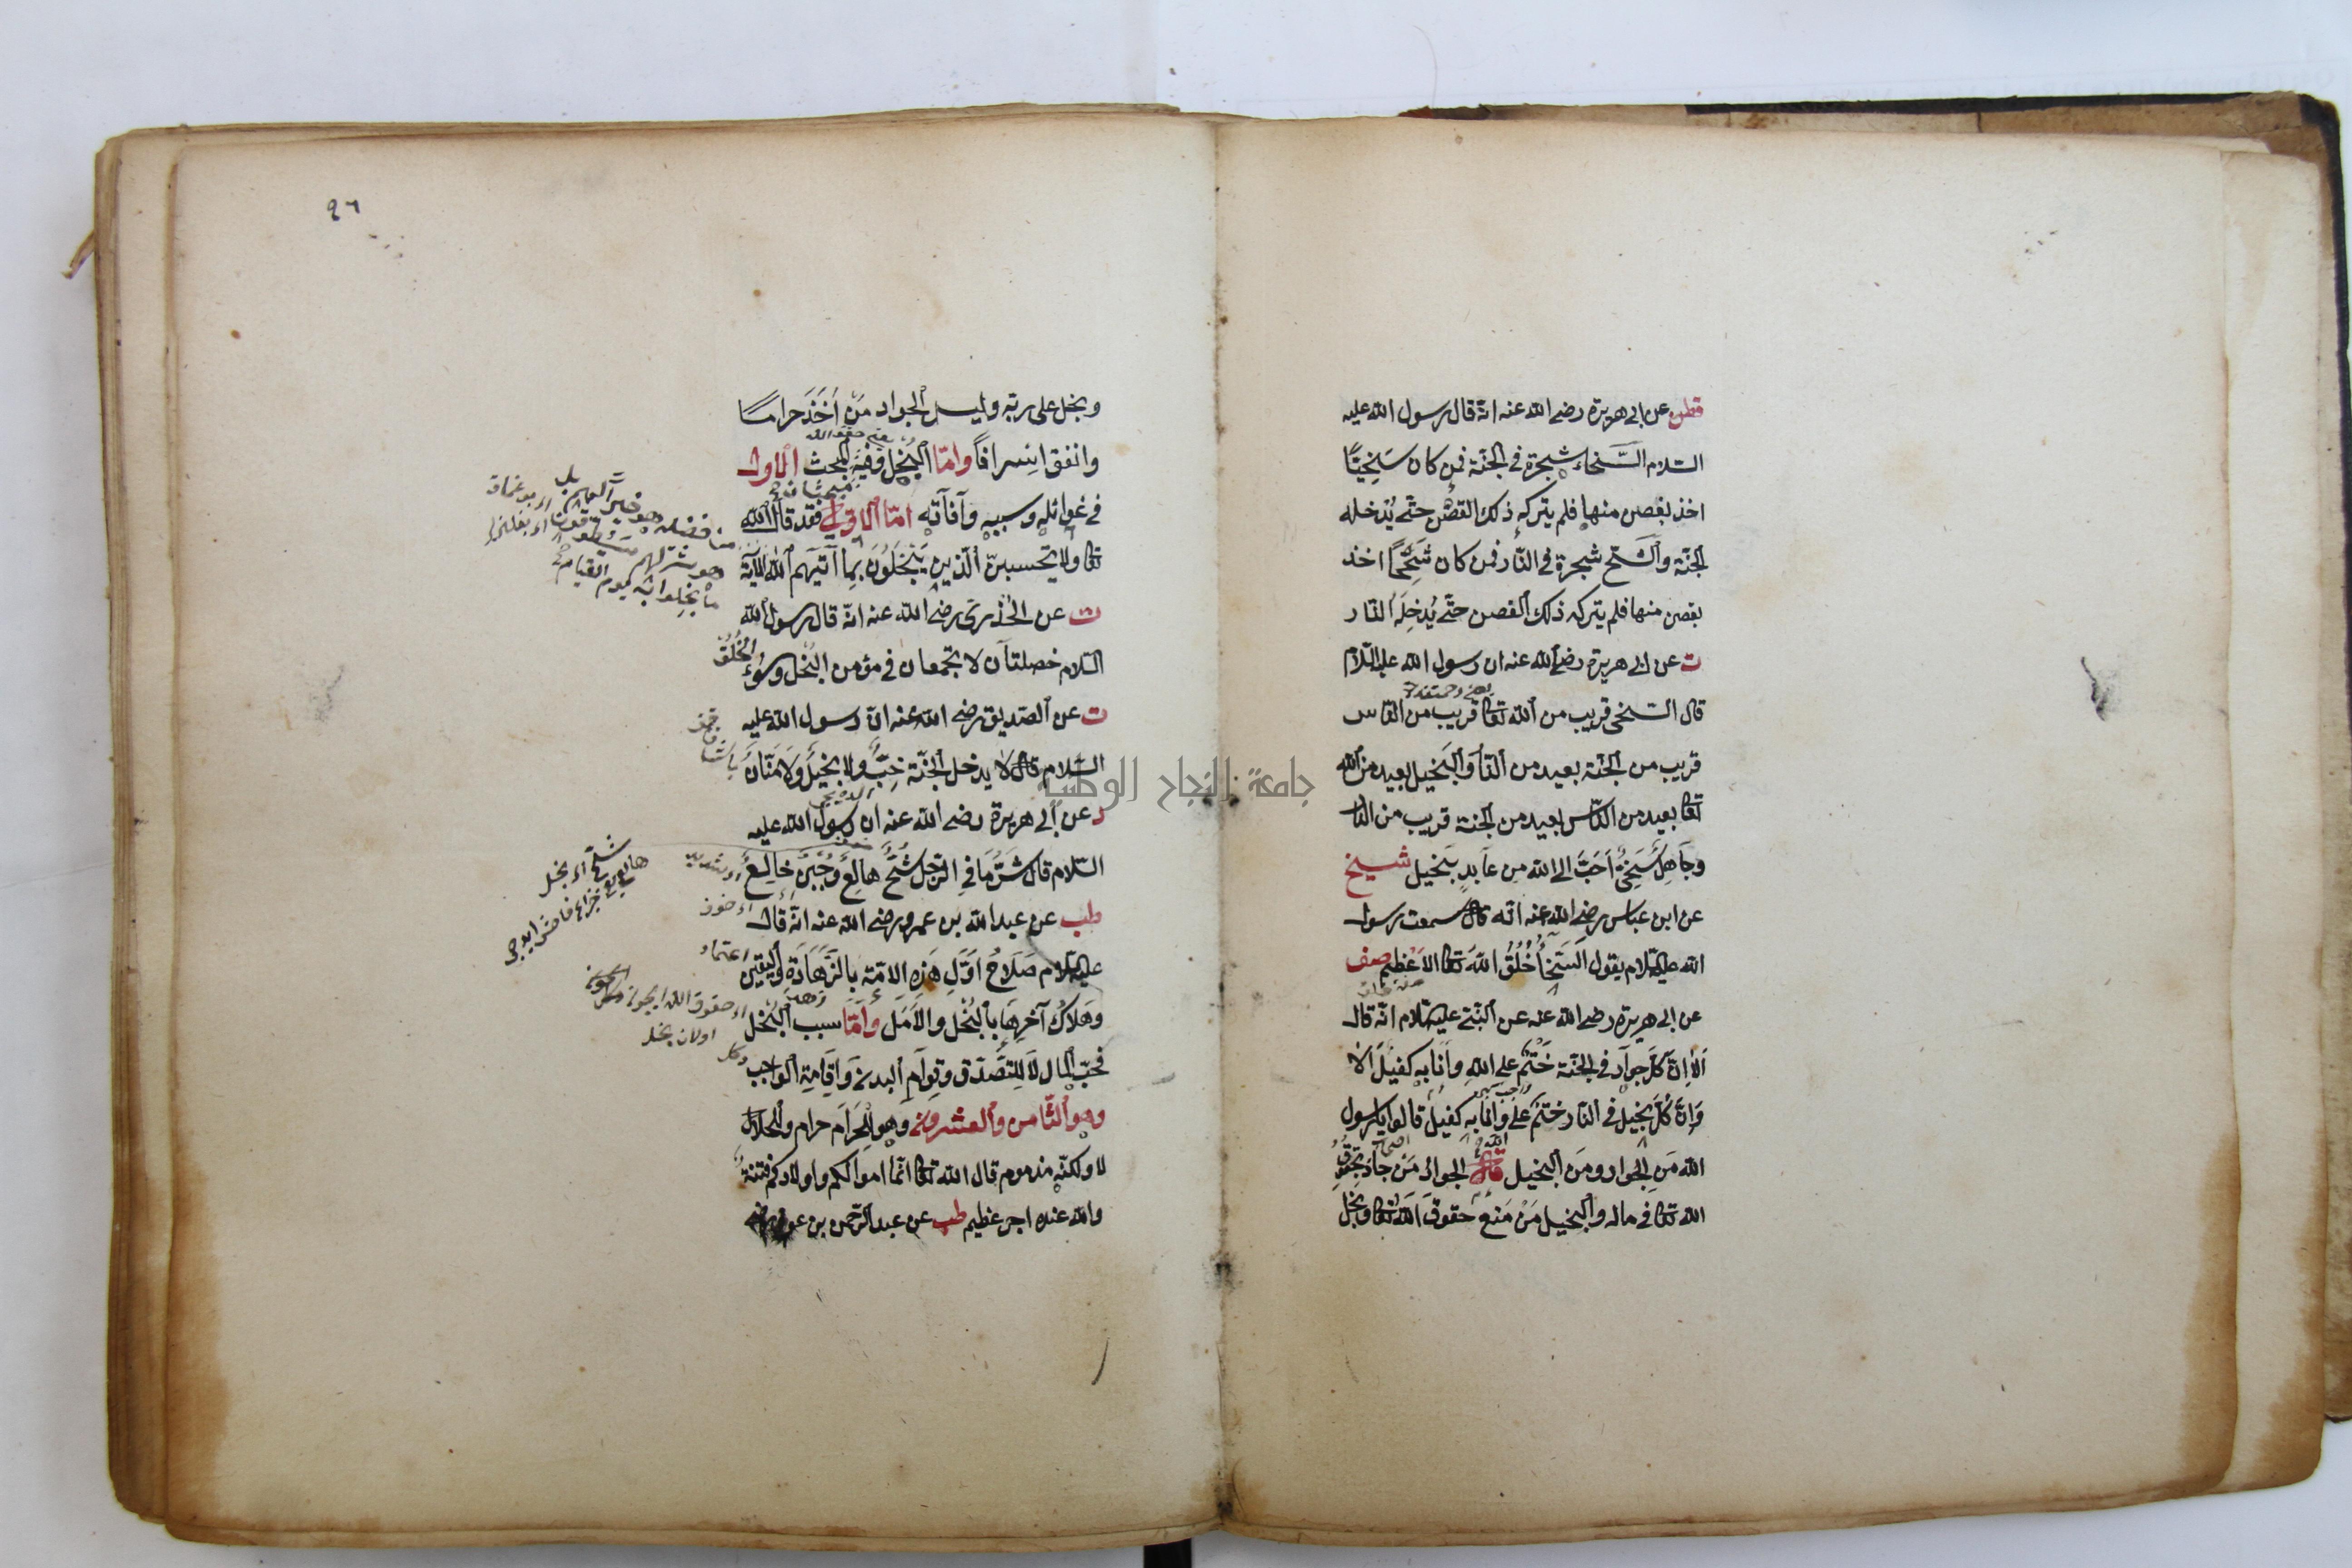 قطن عن ابى هريرة رضى الله عنه انه قال رسول الله عليه
السلام السخاء شجرة فى الجنة فمن كان سخيًا
اخذ بغصن منها فلم يتركه ذلك الغصن حتى يُدخله
الجنة والشح شجرة فى النار فمن كان شحيحًا اخذ
بغصن منها فلم يتركه ذلك الغصن حتى يُدخِلَه النار
ت عن ابى هريرة رضى الله عنه ان رسول الله عليه السلام
قال السخى قريب من الله تعالى قريب من الناس
قريب من الجنة بعيد من النار والبخيل بعيد من الله
تعالى بعيد من الناس بعيد من الجنة قريب من النار
وجاهل سخىّ اَحَبّ الى الله من عابدٍ بخيل شيخ
عن ابن عباس رضى الله عنه انه قال سمعت رسول
الله عليه السلام يقول السخاءُ خُلُقُ الله تعالى الاعظم صف
عن ابى هريرة رضى الله عنه عن النبى عليه السلام انه قال
اَلا اِنّ كلّ جواد فى الجنة حَتْمٌ على الله وأنا به كفيل الا
وَاِنّ كلّ بخيل فى النار حَتْمٌ على وانا به كفيل قالوا يا رسول
الله مَن الجواد ومَن البخيل قال الجواد مَنْ جادَ بحقوق
الله تعالى فى ماله والبخيل مَنْ مَنَع حقوقَ الله تعالى وبَخِلَ
٩٦
وبخل على ربه وليس الجواد مَن اَخَذَ حرامًا
وانفق اِسرافًا وامّا البُخْل ففيه المبحث الاول
مبحثان
فى غوائله وسببه وآفاته امّا الاول فقد قال الله
تعالى ولا يحسبنّ الذين يَبْخَلُونَ بِما آتَيهم الله الآية
من فضله هو خيرا لهم بل
هو شر لهم سيطوقون
ما بخلوا به يوم القيامة
ت عن الخُدْرى رضى الله عنه انه قال رسول الله
السلام خصلتان لا تجمعان فى مؤمن البُخل وسُوء
الخُلُق
ت عن الصديق رضى الله عنه انّ رسول الله عليه
السلام قال لا يدخل الجنة خِبٌّ ولا بخيلٌ ولا مَنّانٌ
د عن ابى هريرة رضى الله عنه ان رسول الله عليه
السلام قال شَرّ مَا فى الرّجل شُحّ هالِعٌ وجُبْنٌ خالِعٌ
طب عن عبد الله بن عمرو رضى الله عنه انه قال
عليه السلام صَلاحُ اَوّلِ هَذِه الامّة بالزَّهَادَة واليقين
وهَلاكُ آخرِها بالبُخْل والاَمَل وأمّا سبب البُخْل
فحُبّ المال لا للتصدّق وقِوام البدن وَاِقامَةِ الواجب
وهو الثامن والعشرون وهو للحرام حرام وللحلال
لا ولكنه مذموم قال الله تعالى انما اموالكم واولادكم فتنة
والله عنده اجر عظيم طب عن عبد الرحمن بن عوف رضى
جامعة النجاح الوطنية